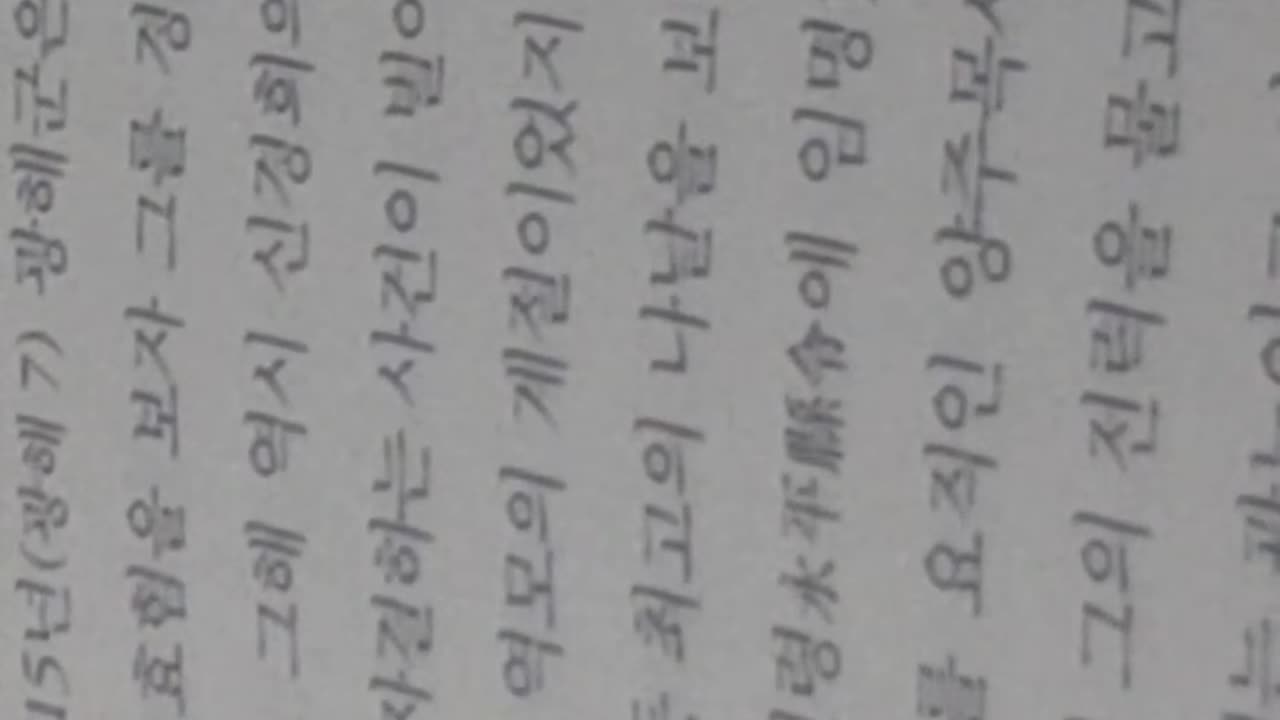 15년(광해 7) 광해군은
효험을 보자 그를 정
그해 역시 신경희의
사건하는 사건이 빈
역모의 계전이었지
최고의 나날을 보
령水平縣令에 임명
를 요직인 양주목
그의 전력을 물고